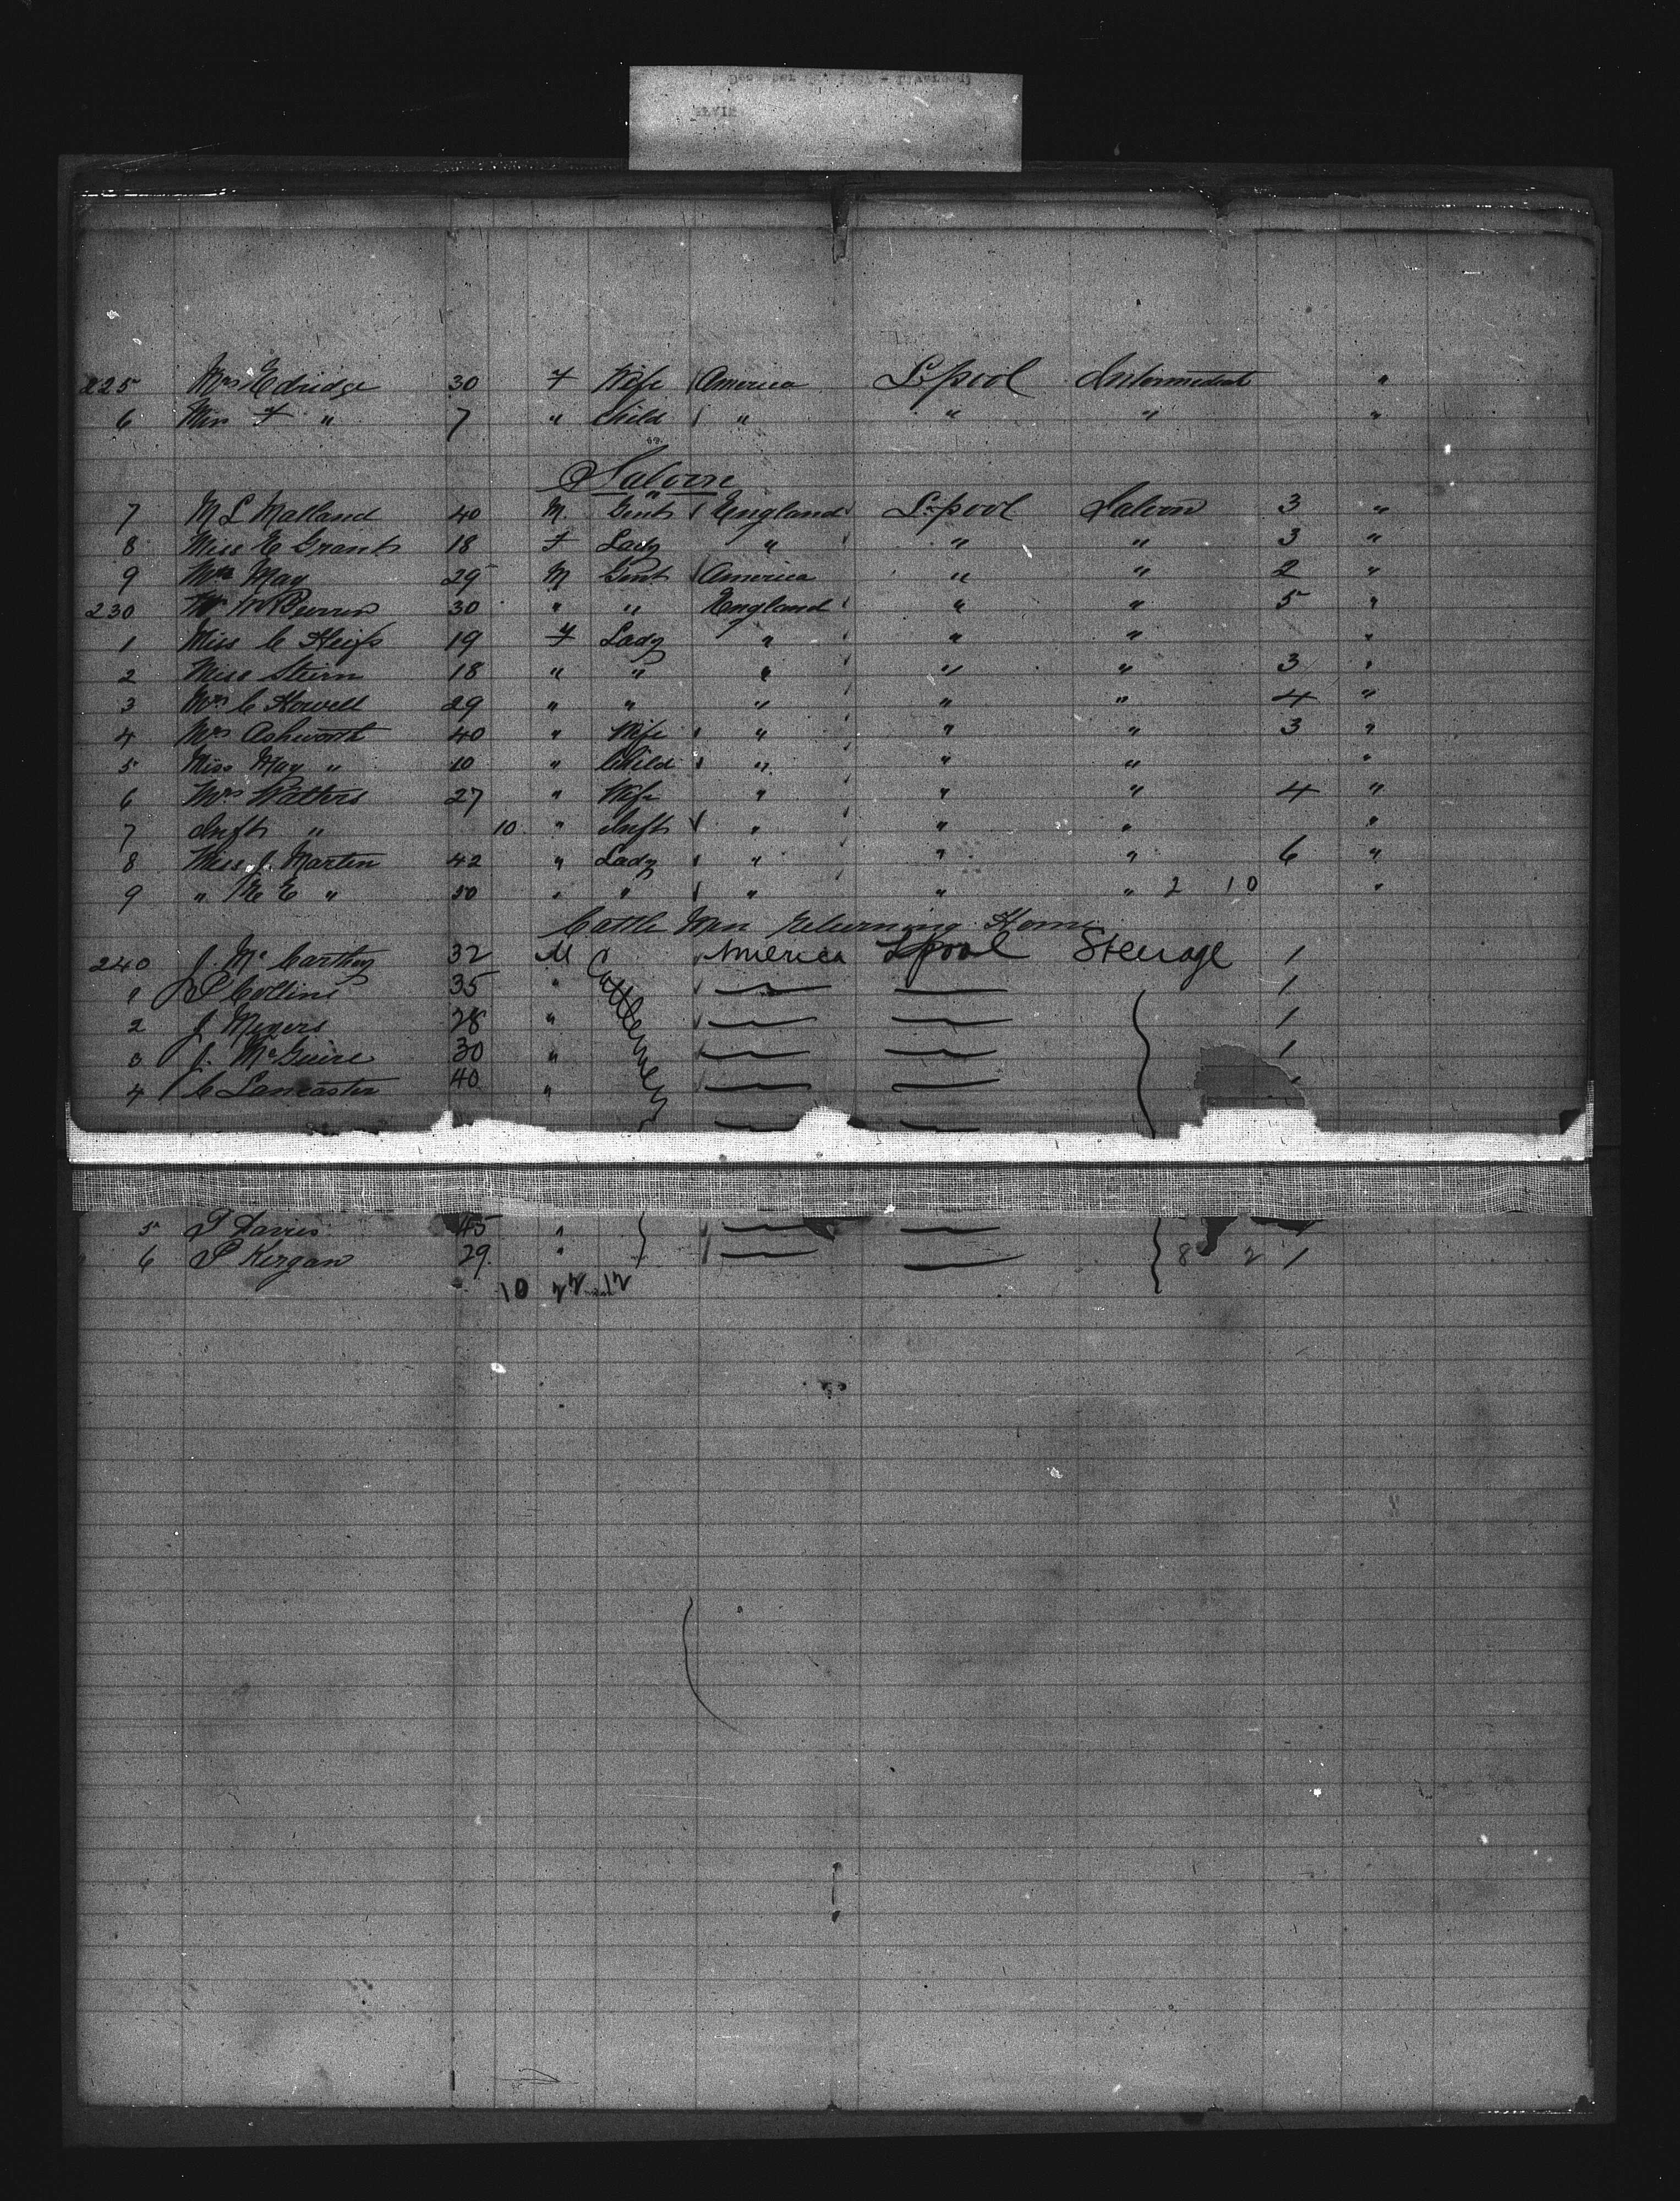 225 Mrs Edridge 30 F Wife America L.pool Intermediat "
6 Miss F " 7 " Child " " " "
Saloon
7 M L Malland 40 M Gent England L.pool Saloon 3 "
8 Miss E Grant 18 F Lady " " " 3 "
9 May 29 M Gent America " " 2 "
230 30 " " England " " 5 "
1 Miss C 19 F Lady " " " "
2 Miss Stern 18 " " " " " 3 "
3 Mrs C Howell 29 " " " " " 4 "
4 Mrs Ashworth 40 " Wife " " " 3 "
5 Miss May " 10 " Child " " " "
6 Mrs Walters 27 " Wife " " " 4 "
7 Inft " 10 " Inft " " " "
8 Miss J. Martin 42 " Lady " " " 6 "
9 " E E " 50 " " " " " 2 10 "
Cattle Men Returning Home
240 J. McCarthy 32 M Cattlemen America Lpool Steerage 1
1 P Collins 35 " 1
2 J Meyers 28 " 1
3 J. McGuire 30 " 1
4 C Lancaster 40 "
5 P Davies 45 " 1
6 P Kergan 29 " 8 2 1
10